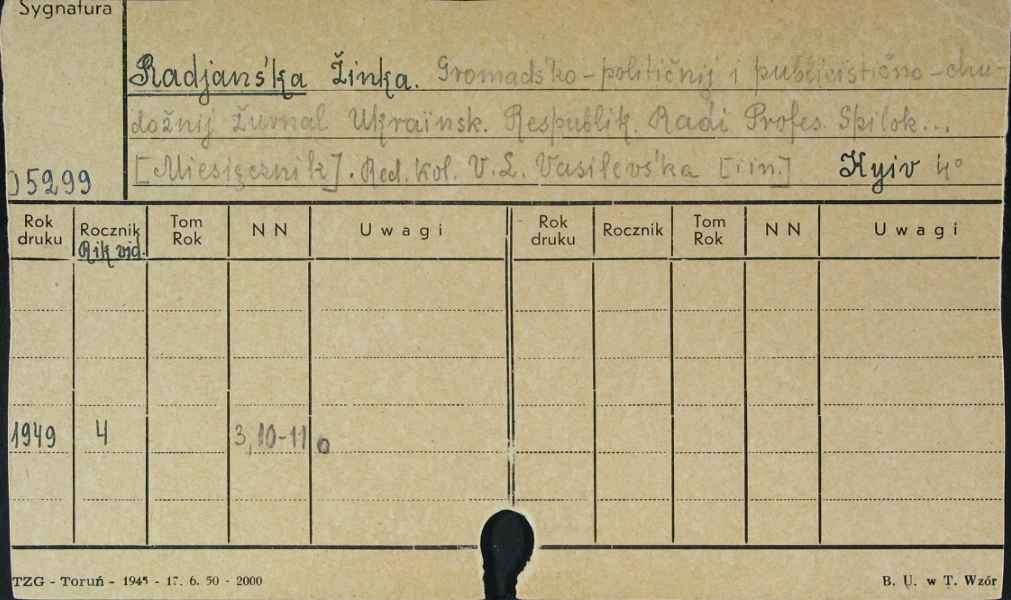 Sygnatura
Radjanśka Žinka. Gromadśko-polityčnij i publicistično-chu-
dožnij žurnal Ukraïnsk. Respublik. Radi Profes. Spilok...
[Miesięcznik]. Red. kol. V. L. Vasilevśka [i in.] Kyiv 4°
05299
Rok druku Rocznik Tom Rok NN Uwagi Rok druku Rocznik Tom Rok NN Uwagi
Rik vid.
1949 4 3, 10-11
TZG - Toruń - 1945 - 17. 6. 50 - 2000 B. U. w T. Wzór